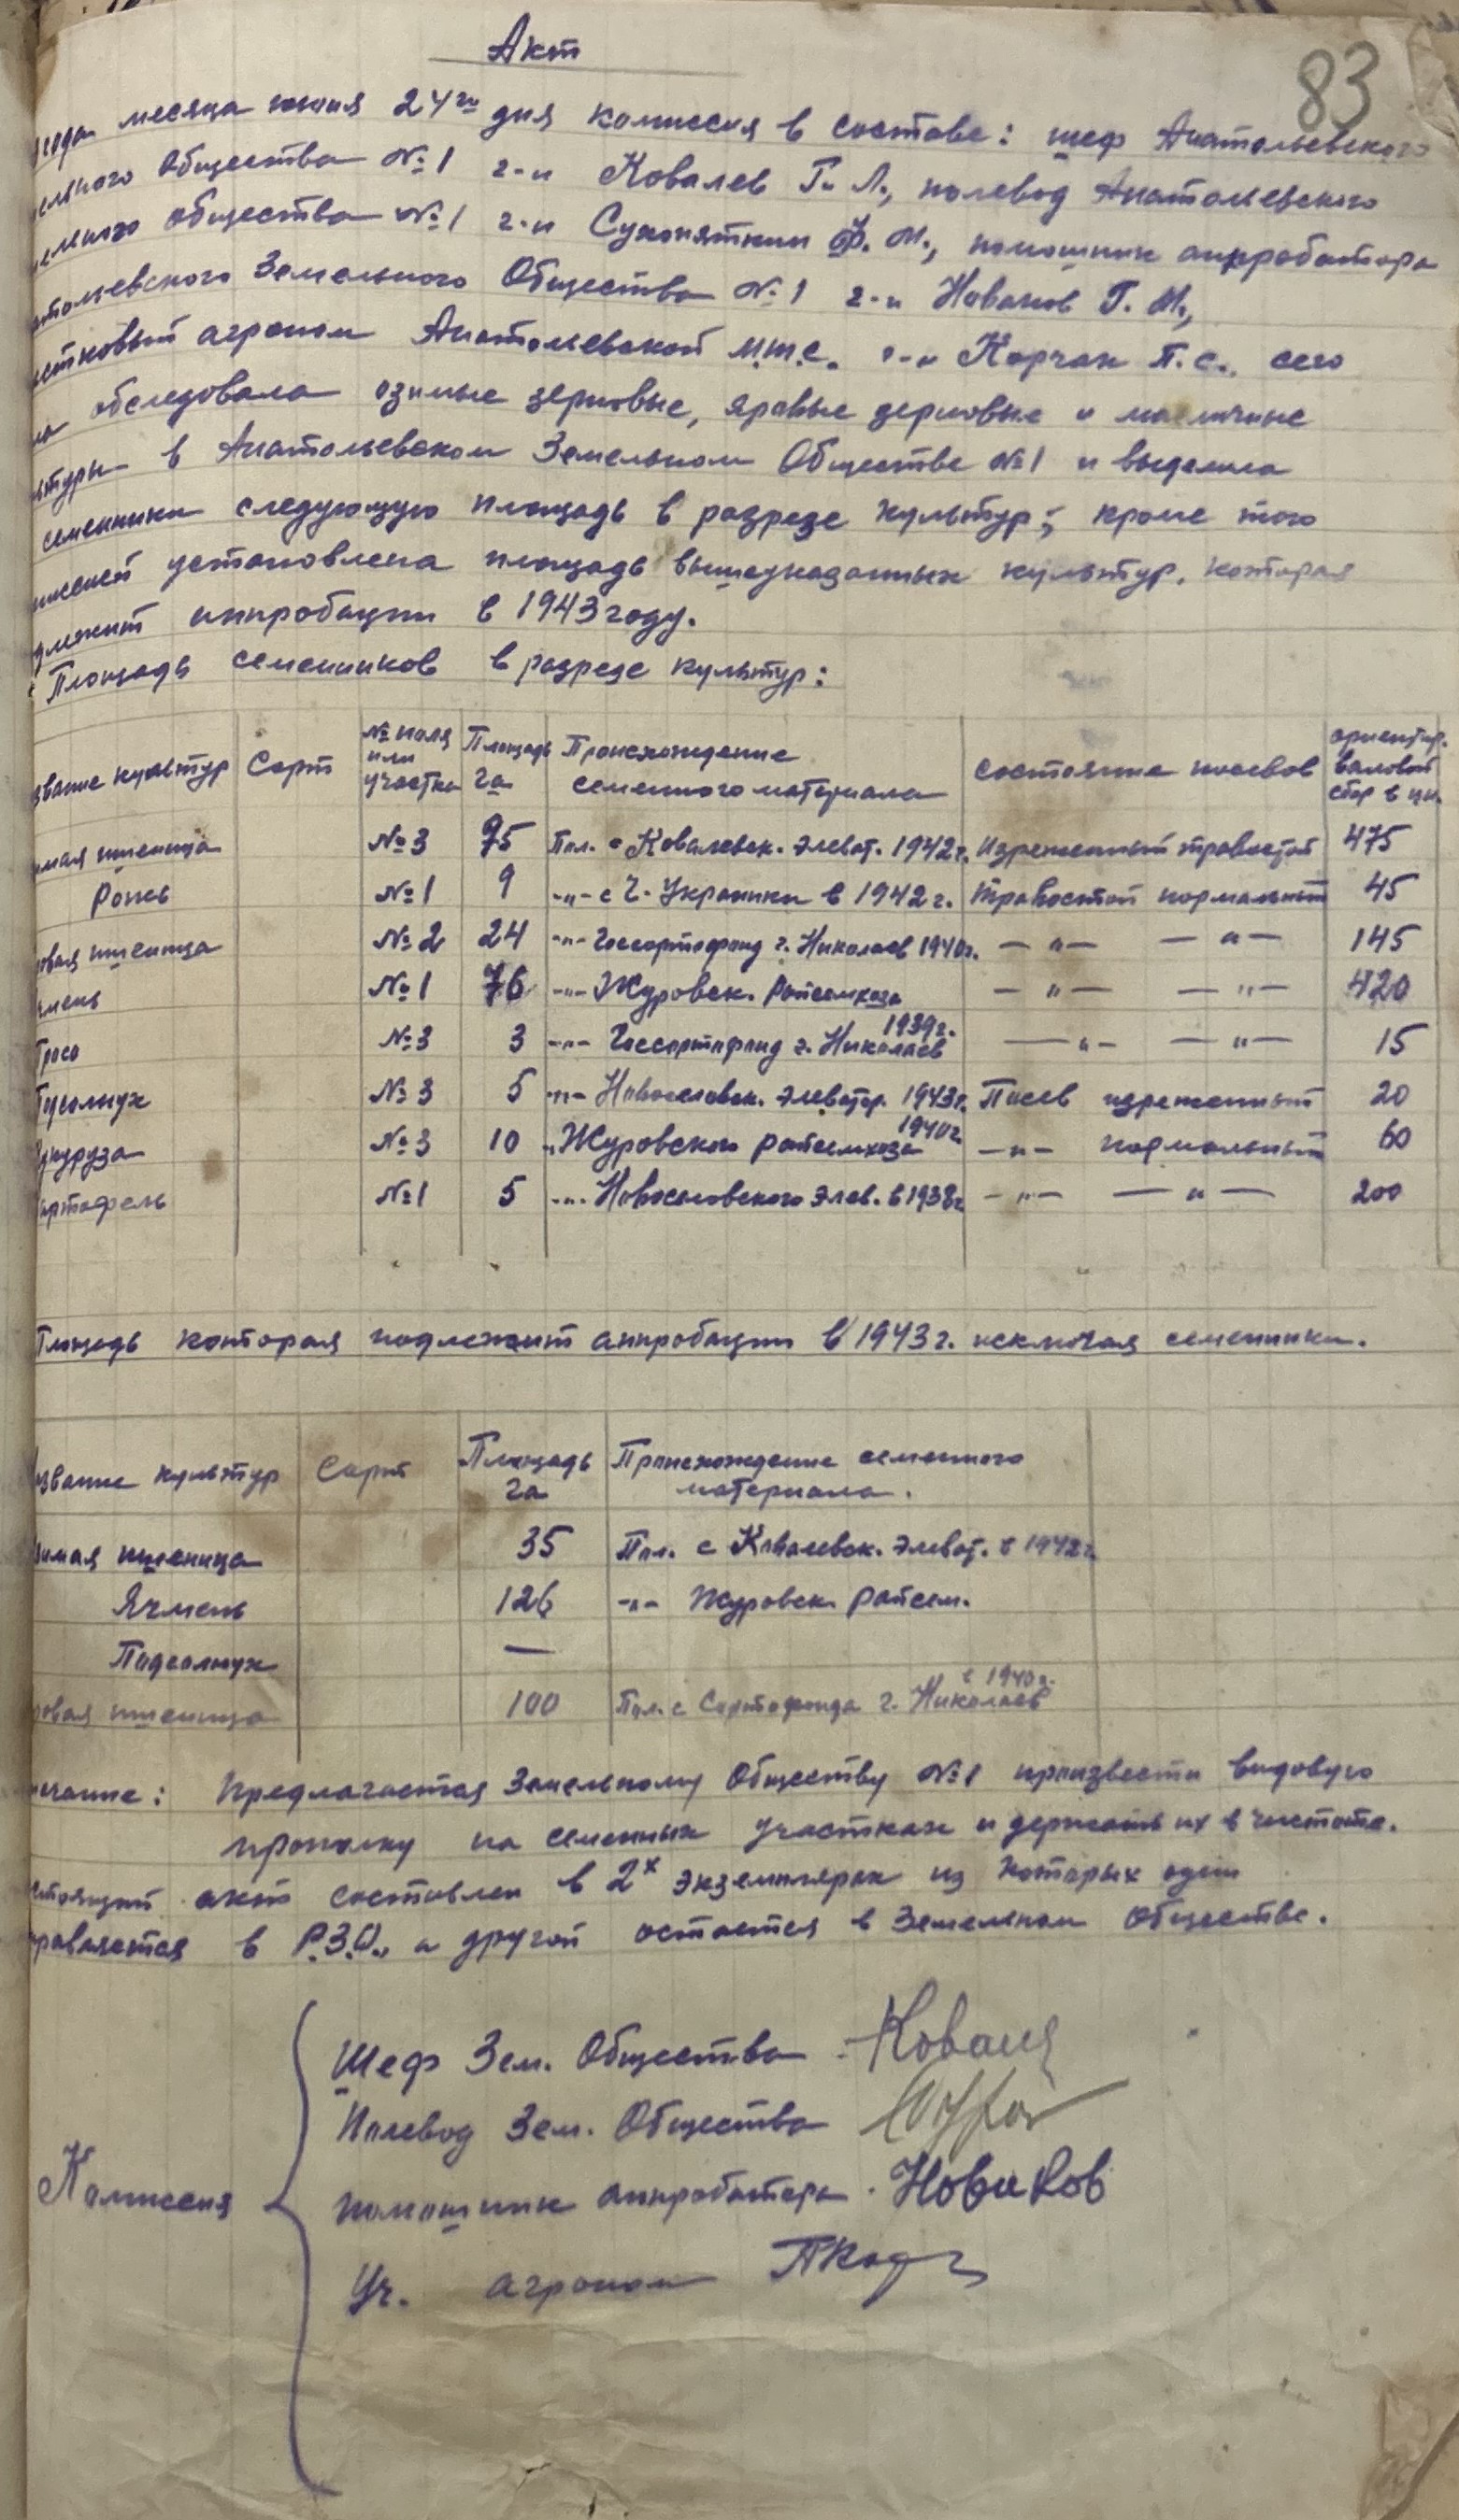 Акт
83
года месяца июня 24го дня комиссия в составе: шеф Анатольевского
ельного Общества №1 г-н Ковалев Г. Л., полевод Анатольевского
ельного общества №1 г-н Сухопяткин Ф. М., помошник аппробатора
атольевского Земельного Общества №1 г-н Новаков Г. М.,
астковый агроном Анатольевской М.Т.С. г-н Корчак П.С., сего
обследовала озимые зерновые, яровые зерновые и масличные
льтуры в Анатольевском Земельном Обществе №1 и выделила
семенники следующую площадь в разрезе культур; кроме того
миссией установлена площадь вышеуказанных культур, которая
длежит аппробации в 1943 году.
Площадь семенников в разрезе культур:
звание культур Сорт № поля или участка Площадь га Происхождение семенного материала Состояние посевов ориентир. валовой сбор в цн.
имая пшеница №3 95 Пол. с Ковалевск. элеват. 1942г. Изреженный травостой 475
Рожь №1 9 -"- с г. Украинки в 1942 г. Травостой нормальный 45
ровая пшеница №2 24 -"- Госсортофонд г. Николаев 1940г. -"- -"- 145
чмень №1 76 -"- Журовск. райсемхоза -"- -"- 420
Просо №3 3 -"- Госсортофонд г. Николаев 1939г. -"- -"- 15
Подсолнух №3 5 -"- Новоселовск. элеватор. 1943г. Посев изреженный 20
укуруза №3 10 -"- Журовского райсемхоза 1940г. -"- нормальный 60
артофель №1 5 -"- Новоселовского элев. в 1938г -"- -"- 200
Площадь которая подлежит аппробации в 1943 г. исключая семенники.
азвание культур Сорт Площадь га Происхождение семенного материала.
зимая пшеница 35 Пол. с Ковалевск. элеват. в 1942 г.
Ячмень 126 -"- Журовск. райсем.
Подсолнух —
ровая пшеница 100 Пол. с Сортофонда г. Николаев в 1940г.
мечание: Предлагается Земельному Обществу №1 произвести видовую
прополку на семенных участках и держать их в чистоте.
стоящий акт составлен в 2х экземплярах из которых один
правляется в Р.З.О., а другой остается в Земельном Обществе.
Комиссия
Шеф Зем. Общества Ковалев
Полевод Зем. Общества
помошник аппробатора Новаков
Уч. агроном